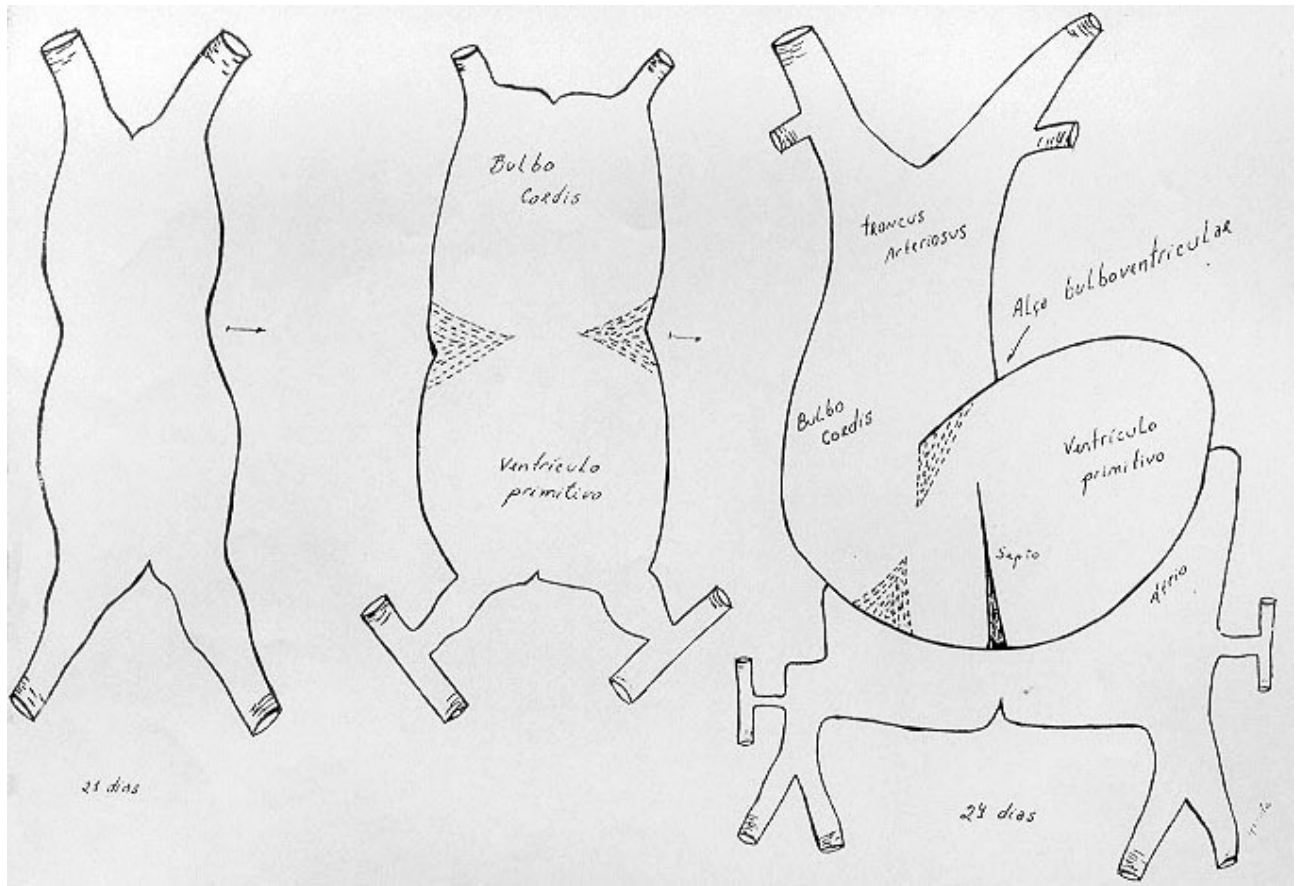 21 dias
Bulbo
Cordis
Ventrículo
primitivo
troncus
Arteriosus
Alça bulboventricular
Bulbo
Cordis
Ventrículo
primitivo
Septo
Átrio
24 dias